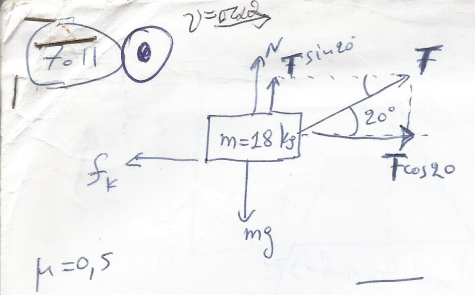 7.11
N
T sin20
T
m=18 kg
20°
T cos20
fk
mg
μ=0,5